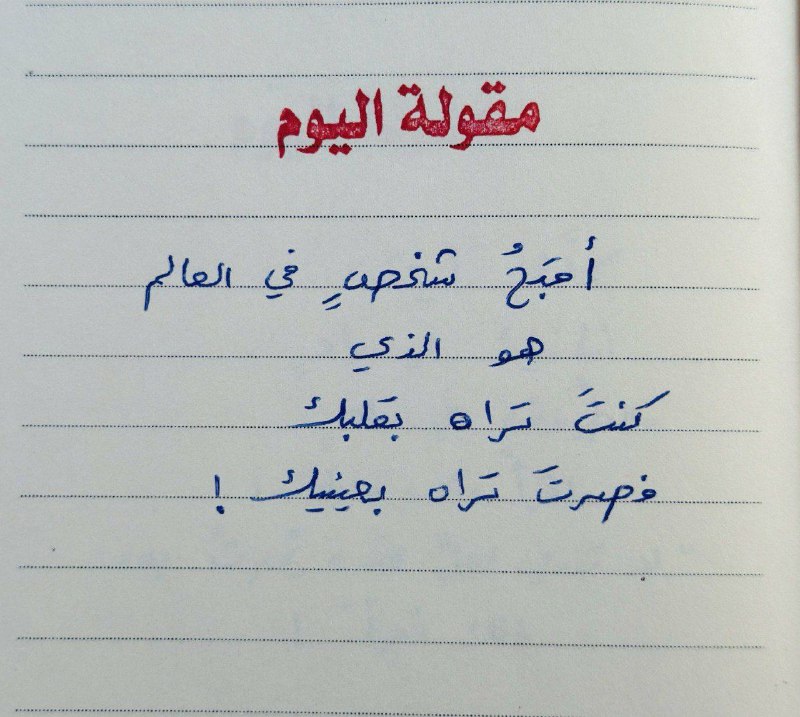 مقولة اليوم
أقبَحُ شخصٍ في العالم
هو الذي
كنتَ تَراه بقَلبك
فصرتَ تَراه بعينيك !